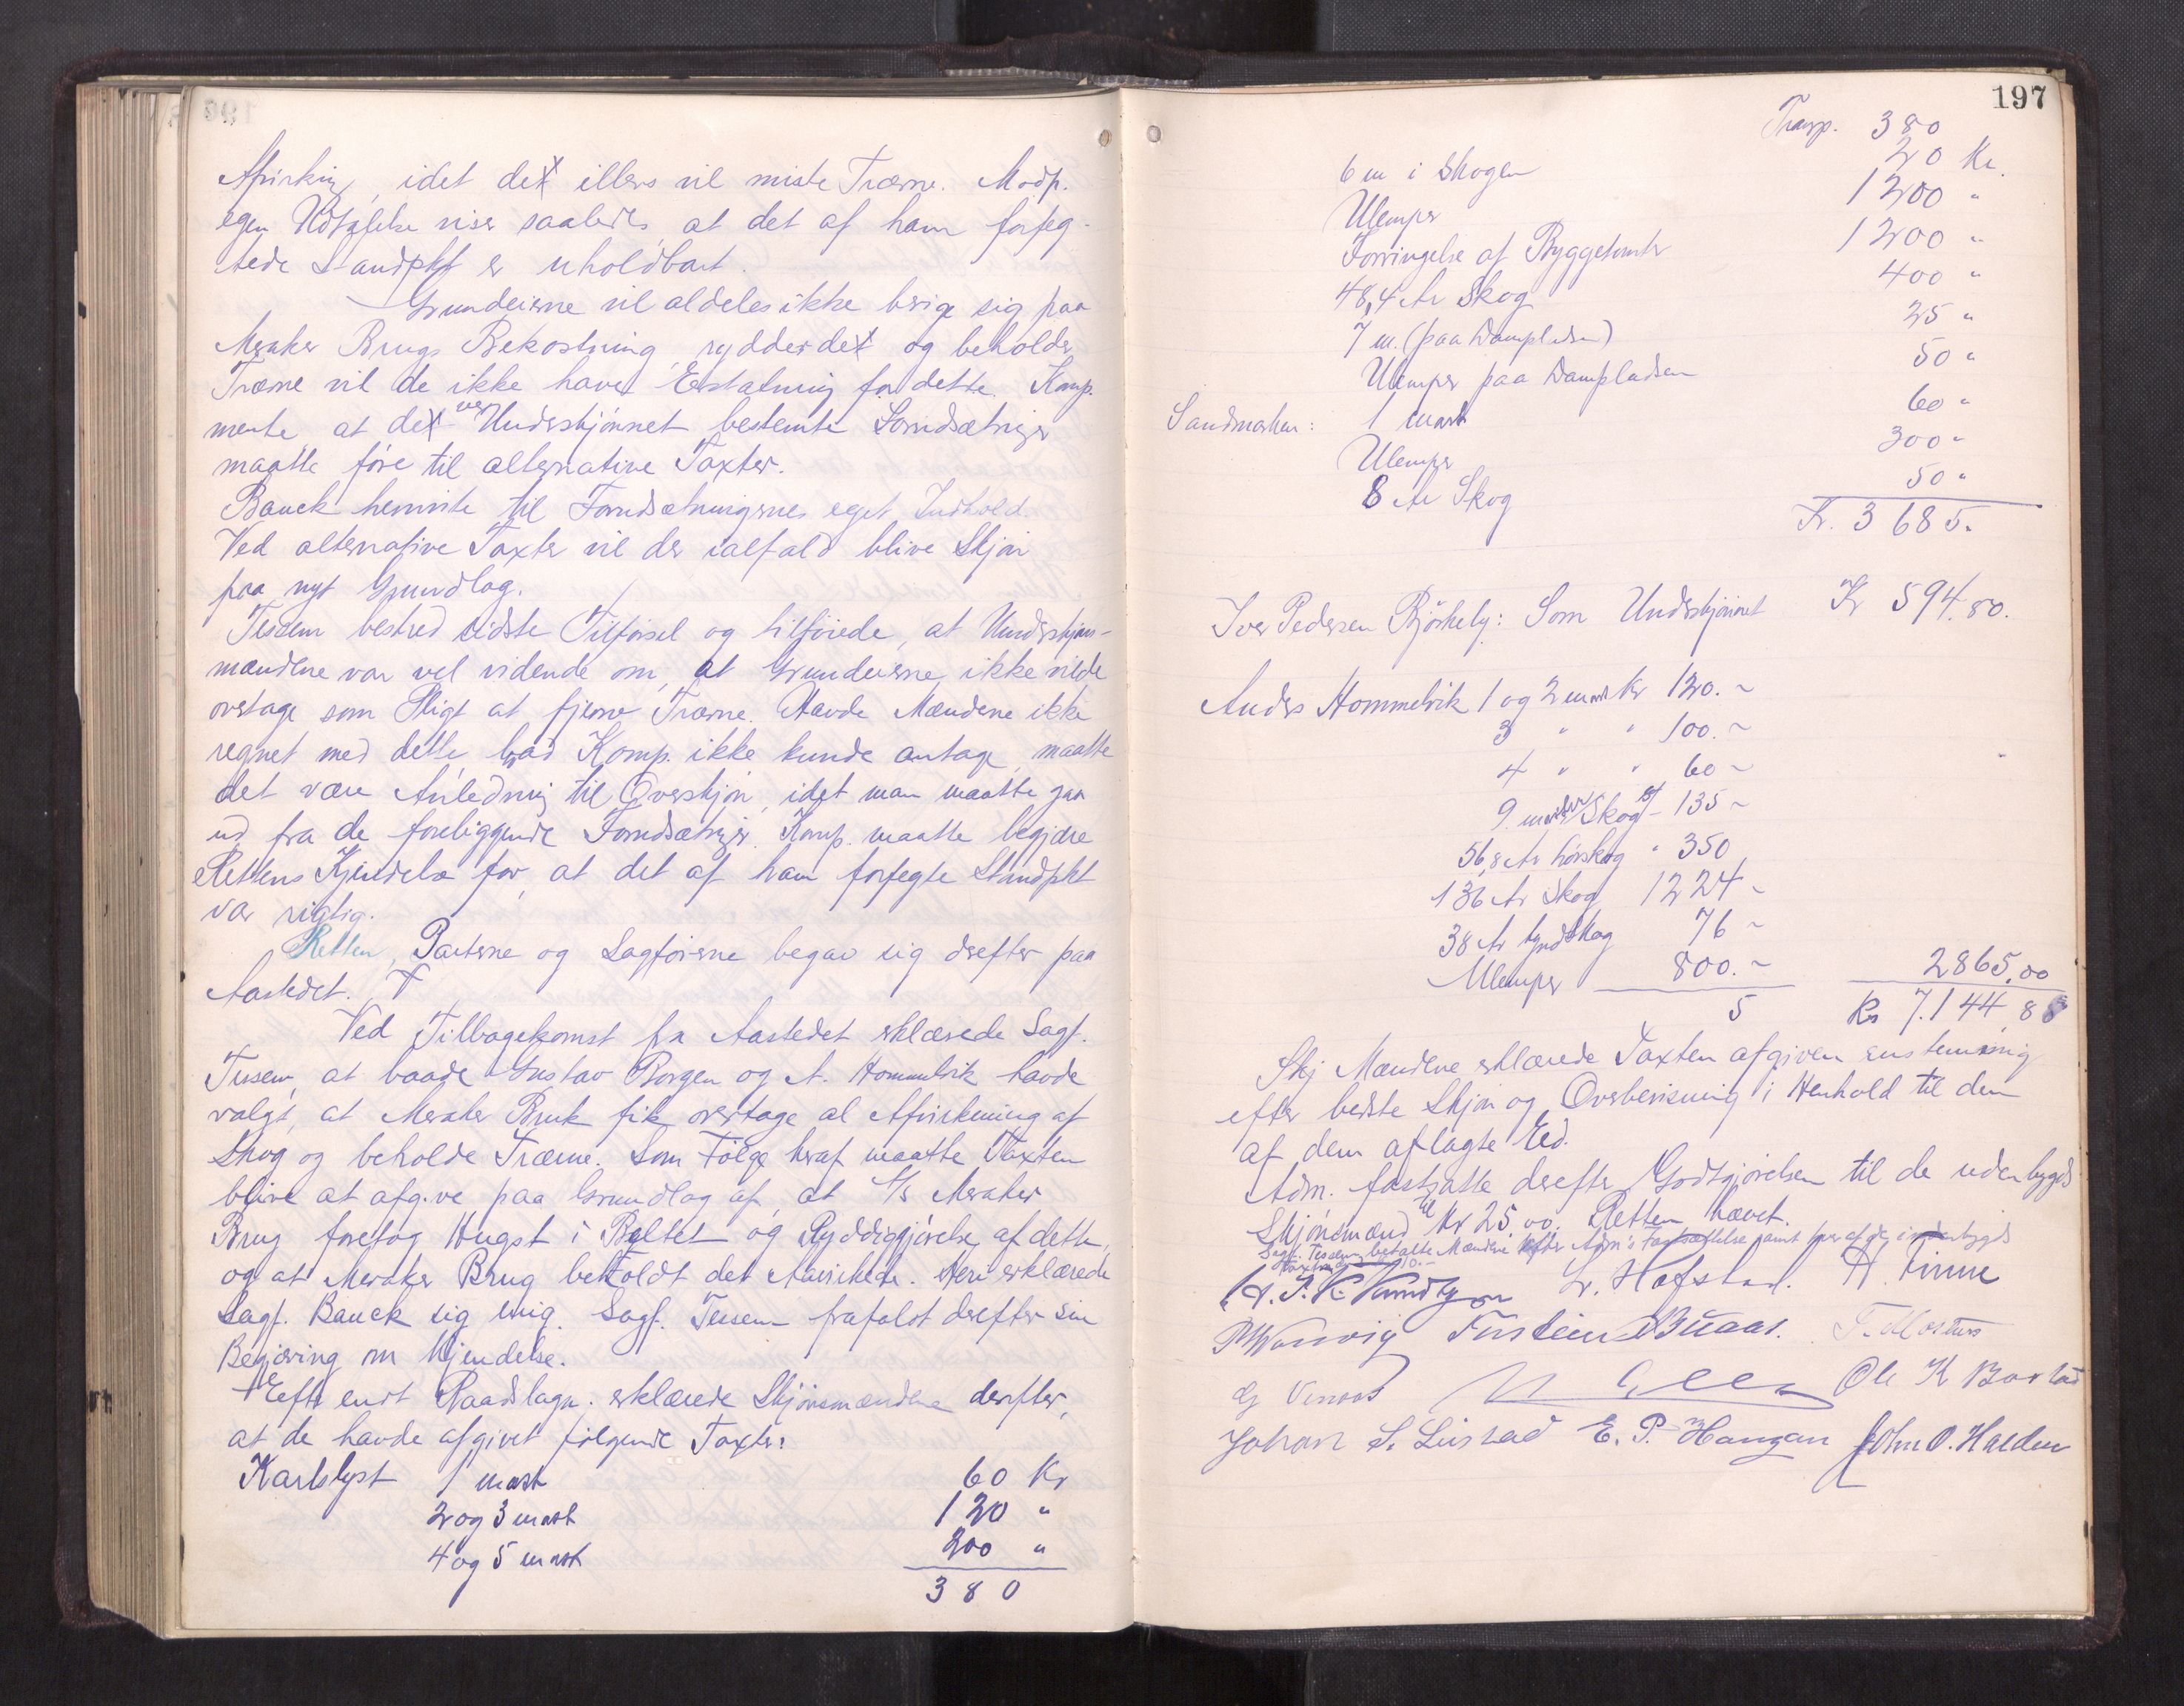 Afvirkning, idet det ellers vil miste Træerne. Modp.
egen Udtalelse viser saaledes, at det af ham forfeg-
tede Standpkt er uholdbart.
Grundeierne vil aldeles ikke berige sig paa
Meraker Brugs Bekostning, rydder det og beholder
Træerne vil de ikke have Erstatning for dette. Komp.
mente, at det ved Underskjønnet bestemte Forudsætninger
maatte føre til alternative Taxter.
Bauck henviste til Forudsætningernes eget Indhold.
Ved alternative Taxter vil der ialfald blive Skjøn
paa nyt Grundlag.
Tessem bestred sidste Tilførsel og tilføiede, at Underskjøns-
mændene var vel vidende om, at Grundeierne ikke vilde
overtage som Pligt at fjerne Træerne. Havde Mændene ikke
regnet med dette, hvad Komp. ikke kunde antage, maatte
det være Anledning til Overskjøn, idet man maatte gaa
ud fra de foreliggende Forudsætninger. Komp. maatte begjære
Rettens Kjendelse for, at det af ham forfegte Standpkt
var rigtig.
Retten, Parterne og Sagførerne begav sig derefter paa
Aastedet.
Ved Tilbagekomst fra Aastedet erklærede Sagf.
Tessem, at baade Gustav Borgen og A. Hommelvik havde
valgt, at Meraker Bruk fik overtage al Afvirkning af
Skog og beholde Træerne. Som Følge heraf maatte Taxten
blive at afgive paa Grundlag af, at A/S Meraker
Brug foretog Hugst i Beltet og Ryddiggjørelse af dette,
og at Meraker Brug beholdt det Afvirkede. Heri erklærede
Sagf. Bauck sig enig. Sagf. Tessem frafaldt derefter sin
Begjæring om Kjendelse.
Efter endt Raadslagn. erklærede Skjønsmændene derefter,
at de havde afgivet følgende Taxter:
Karlslyst 1 mast 60 Kr
2 og 3 mast 120 "
4 og 5 mast 200 "
380
197
Transp. 380
6 m i Skogen 20 Kr.
Ulemper 1200 "
Forringelse af Byggetomter 1200 "
48,4 Ar Skog 400 "
7 m. (paa Dampladsen) 25 "
Ulemper paa Dampladsen 50 "
Sandmarken: 1 mast 60 "
Ulemper 300 "
8 Ar Skog 50 "
Kr. 3685.
Iver Pedersen Bjørkely: Som Underskjønnet Kr 594.80.
Anders Hommelvik 1 og 2 mast Kr 120. -
3 " " 100. -
4 " " 60 -
9 m Skog 135 -
56,8 Ar Løvskog " 350
136 Ar Skog 1224 -
38 Ar tynd Skog 76 -
Ulemper 800. - 2865.00
5 Kr 7.144,80
Skj Mændene erklærede Taxten afgiven enstemmig
efter bedste Skjøn og Overbevisning i Henhold til den
af dem aflagte Eed.
Adm. fastsatte derefter Godtgjørelsen til de udenbygds
Skjønsmænd til Kr 25.00. Retten hævet.
Sagf. Tessem betalte Mændene efter Adm's Fastsættelse samt hver af de indenbygds
10.-
L. Hofstad. H. Finne
Torstein Buaas.
Ole K Borstad
Johan S. Leistad E. P. Haugan John O. Halden